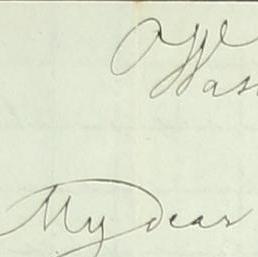 Was
My dear